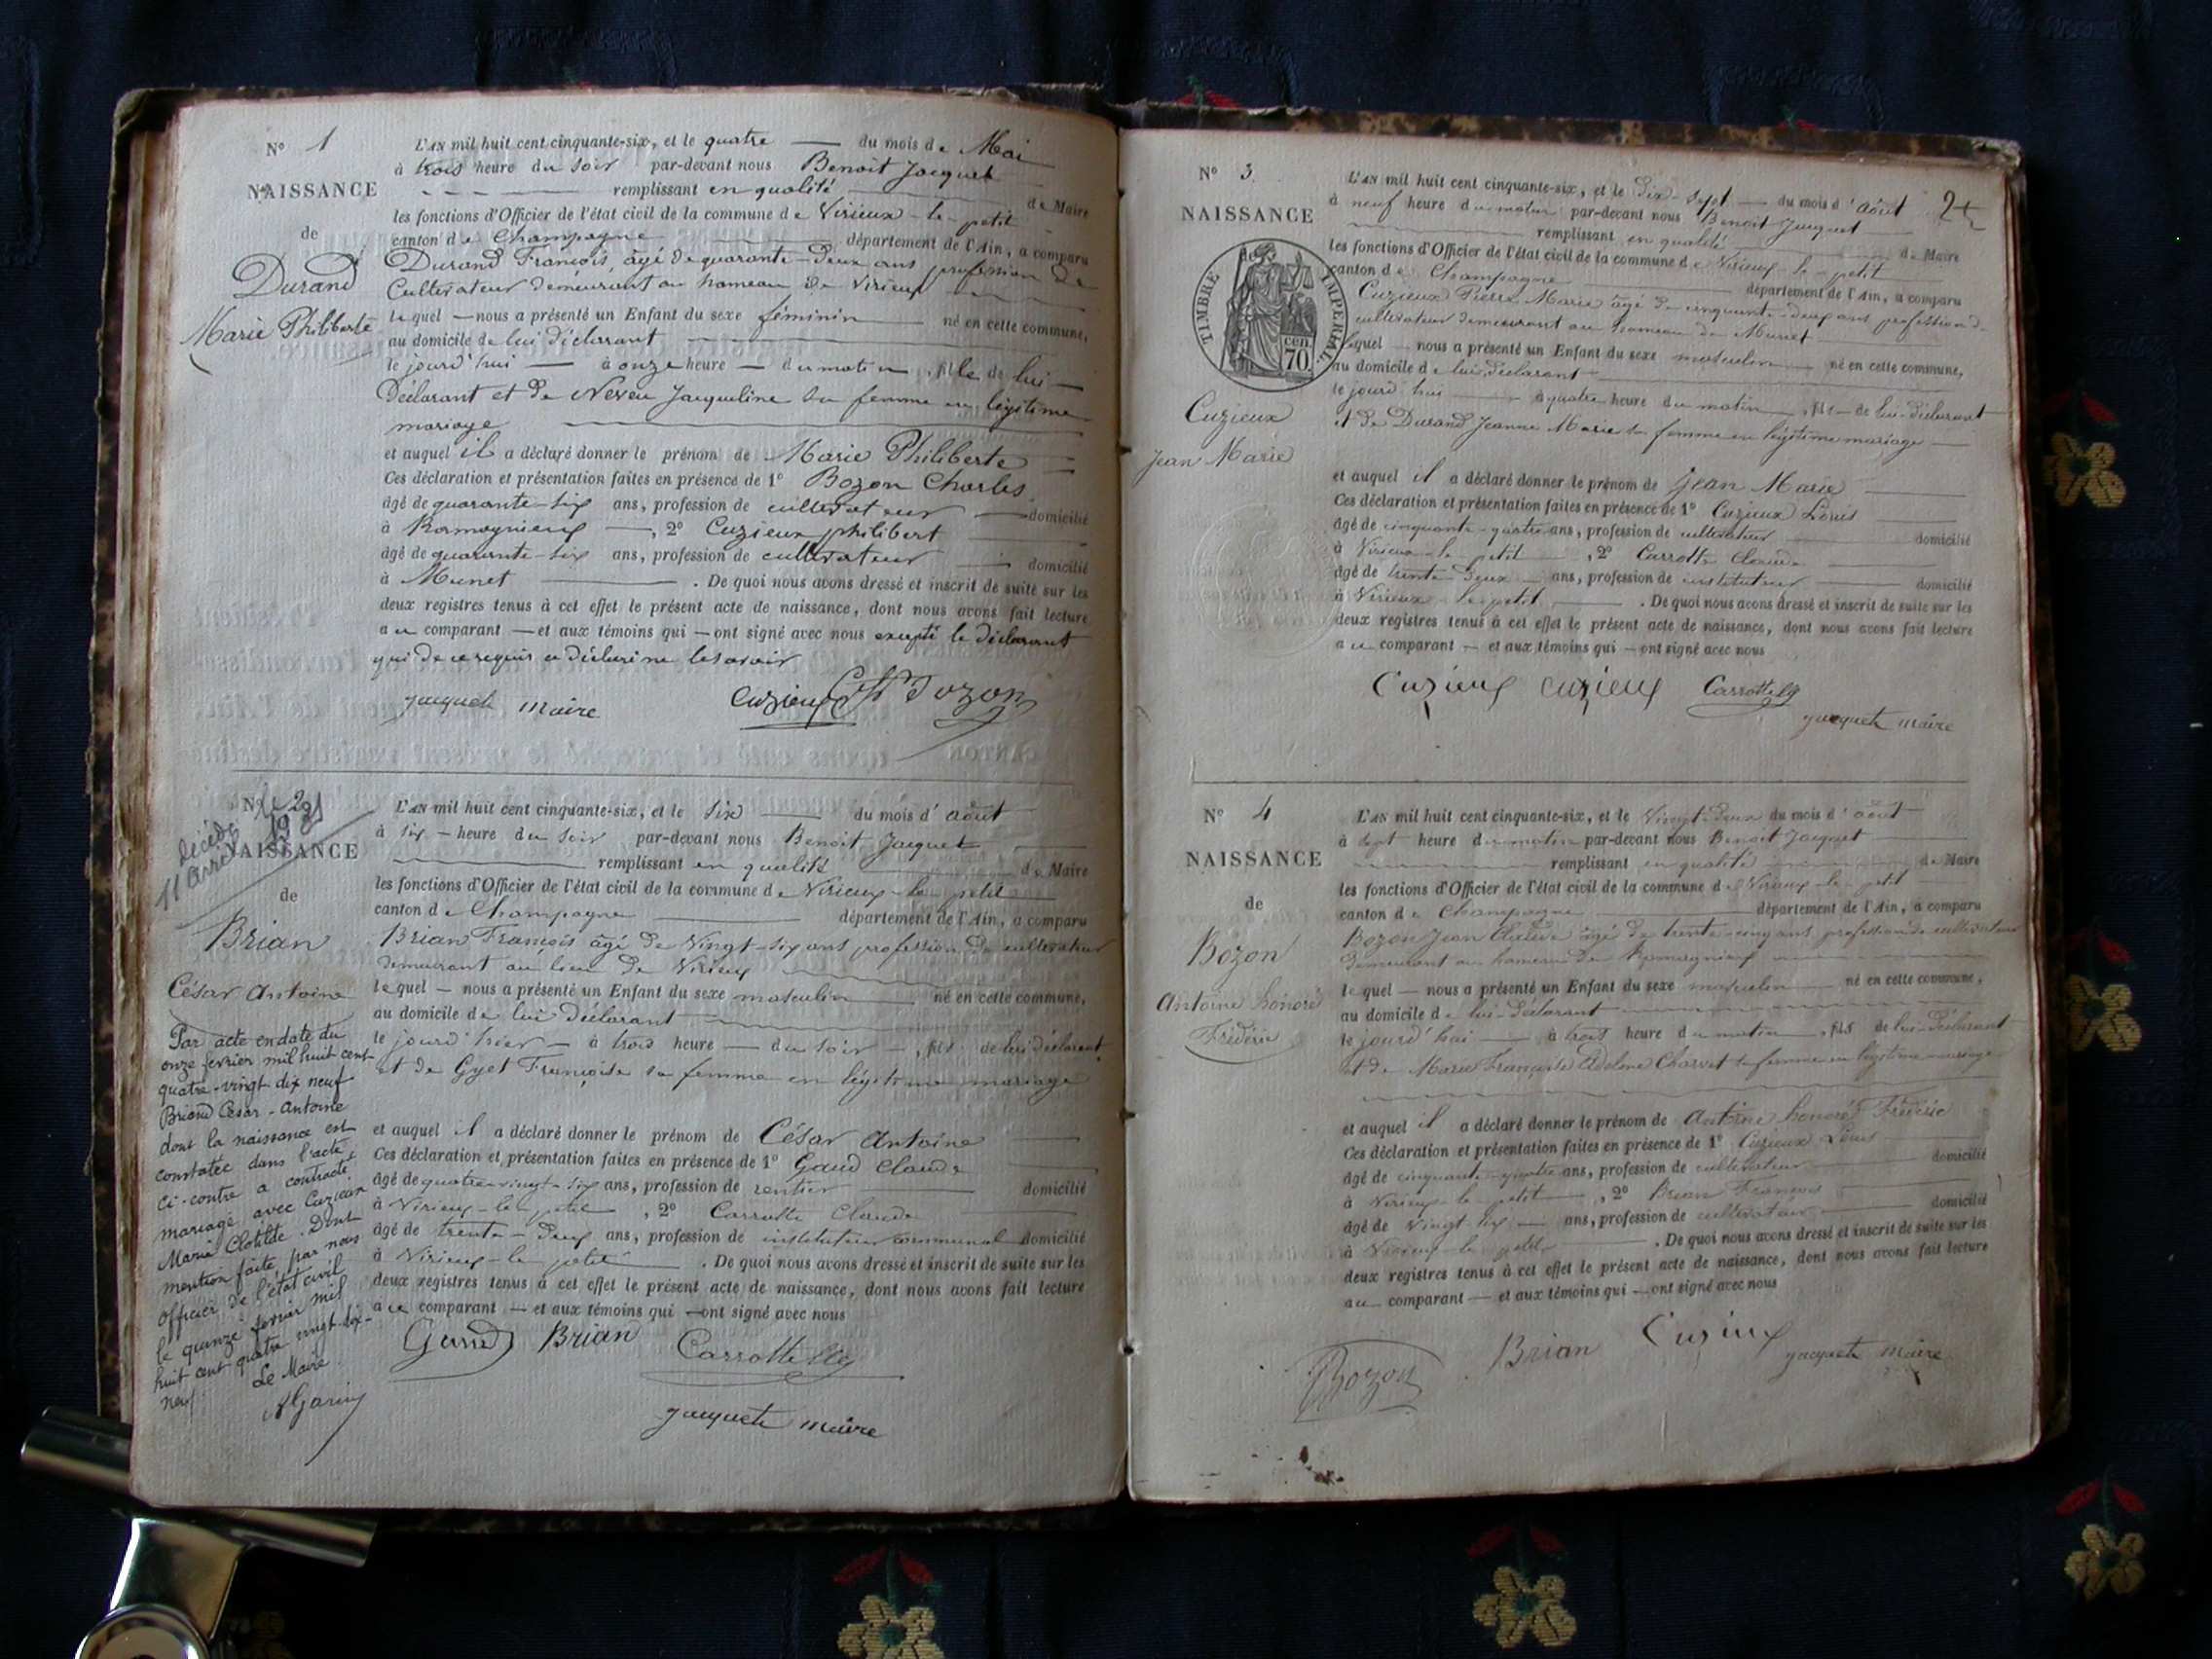 N° 1
NAISSANCE
de
Durand
Marie Philiberte
L'AN mil huit cent cinquante-six, et le quatre du mois de Mai
à trois heure du soir par-devant nous Benoit Jacquet
remplissant en qualité de Maire
les fonctions d'Officier de l'état civil de la commune de Virieux-le-petit
canton de Champagne département de l'Ain, a comparu
Durand François, âgé de quarante-deux ans profession de
Cultivateur demeurant au hameau de Virieux
lequel nous a présenté un Enfant du sexe féminin né en cette commune,
au domicile de lui déclarant
le jourd'hui à onze heure du matin, fille de lui
Déclarant et de Neveu Jacqueline sa femme en légitime
mariage
et auquel il a déclaré donner le prénom de Marie Philiberte
Ces déclaration et présentation faites en présence de 1° Bozon Charles
âgé de quarante-six ans, profession de cultivateur domicilié
à Romagnieux, 2° Cuzieux philibert
âgé de quarante-six ans, profession de cultivateur domicilié
à Munet. De quoi nous avons dressé et inscrit de suite sur les
deux registres tenus à cet effet le présent acte de naissance, dont nous avons fait lecture
au comparant et aux témoins qui ont signé avec nous excepté le déclarant
qui de ce requis a déclaré ne le savoir
jacquet maire Cuzieux Bozon
N° 2
décédé le
11 1921
NAISSANCE
de
Brian
César Antoine
Par acte en date du
onze fevrier mil huit cent
quatre-vingt dix neuf
Briand César-Antoine
dont la naissance est
constatée dans l'acte
ci-contre a contracté
mariage avec Cuzieux
Marie Clotilde. Dont
mention faite par nous
officier de l'état civil
le quinze fevrier mil
huit cent quatre vingt-dix-
neuf.
Le Maire
L'AN mil huit cent cinquante-six, et le six du mois d'août
à six heure du soir par-devant nous Benoit Jacquet
remplissant en qualité de Maire
les fonctions d'Officier de l'état civil de la commune de Virieux-le-petit
canton de Champagne département de l'Ain, a comparu
Brian François âgé de Vingt-six ans profession de cultivateur
demeurant au lieu de Virieux
lequel nous a présenté un Enfant du sexe masculin né en cette commune,
au domicile de lui déclarant
le jourd'hier à trois heure du soir, fils de lui déclarant
et de Gyet Françoise sa femme en légitime mariage
et auquel il a déclaré donner le prénom de César Antoine
Ces déclaration et présentation faites en présence de 1° Gaud Claude
âgé de quatre-vingt-six ans, profession de rentier domicilié
à Virieux-le-petit, 2° Carrotte Claude
âgé de trente-deux ans, profession de instituteur communal domicilié
à Virieux-le-petit. De quoi nous avons dressé et inscrit de suite sur les
deux registres tenus à cet effet le présent acte de naissance, dont nous avons fait lecture
au comparant et aux témoins qui ont signé avec nous
Brian
jacquet maire
N° 3.
NAISSANCE
TIMBRE IMPERIAL
70 cen.
Cuzieux
Jean Marie
2
L'AN mil huit cent cinquante-six, et le Dix-sept du mois d'août
à neuf heure du matin par-devant nous Benoit Jacquet
remplissant en qualité de Maire
les fonctions d'Officier de l'état civil de la commune de Virieux-le-petit
canton de Champagne département de l'Ain, a comparu
Cuzieux Pierre Marie âgé de cinquante-deux ans profession de
cultivateur demeurant au hameau de Munet
lequel nous a présenté un Enfant du sexe masculin né en cette commune,
au domicile de lui déclarant
le jourd'hui à quatre heure du matin, fils de lui déclarant
et de Durand Jeanne Marie sa femme en légitime mariage
et auquel il a déclaré donner le prénom de Jean Marie
Ces déclaration et présentation faites en présence de 1° Cuzieux Louis
âgé de cinquante-quatre ans, profession de cultivateur domicilié
à Virieux-le-petit, 2° Carrotte Claude
âgé de trente deux ans, profession de instituteur domicilié
à Virieux-le-petit. De quoi nous avons dressé et inscrit de suite sur les
deux registres tenus à cet effet le présent acte de naissance, dont nous avons fait lecture
au comparant et aux témoins qui ont signé avec nous
Cuzieux Cuzieux
jacquet maire
N° 4
NAISSANCE
de
Bozon
Antoine honoré
Fréderic
L'AN mil huit cent cinquante-six, et le Vingt-deux du mois d'août
à sept heure du matin par-devant nous Benoit Jacquet
remplissant en qualité de Maire
les fonctions d'Officier de l'état civil de la commune de Virieux-le-petit
canton de Champagne département de l'Ain, a comparu
Bozon Jean Claude âgé de trente-cinq ans profession de cultivateur
demeurant au hameau de Romagnieux
lequel nous a présenté un Enfant du sexe masculin né en cette commune,
au domicile de lui déclarant
le jourd'hui à trois heure du matin, fils de lui déclarant
et de Marie Françoise Adeline Charvet sa femme en légitime mariage
et auquel il a déclaré donner le prénom de Antoine honoré Fréderic
Ces déclaration et présentation faites en présence de 1° Cuzieux Louis
âgé de cinquante-quatre ans, profession de cultivateur domicilié
à Virieux-le-petit, 2° Brian François
âgé de Vingt six ans, profession de cultivateur domicilié
à Virieux-le-petit. De quoi nous avons dressé et inscrit de suite sur les
deux registres tenus à cet effet le présent acte de naissance, dont nous avons fait lecture
au comparant et aux témoins qui ont signé avec nous
Bozon Brian Cuzieux jacquet maire